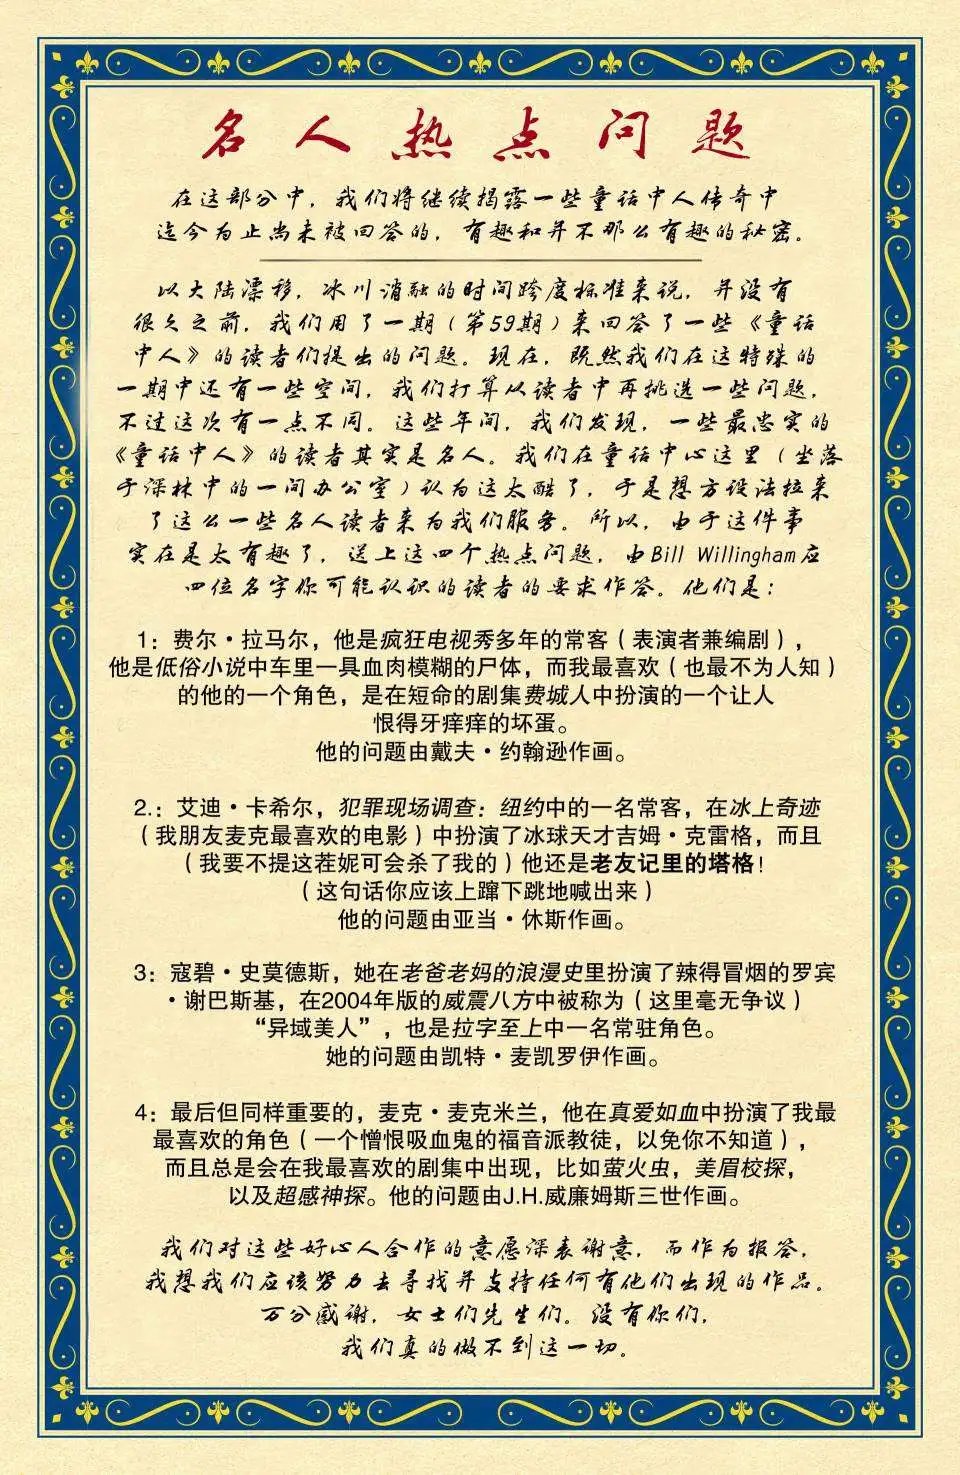 名人热点问题
在这部分中，我们将继续揭露一些童话中人传奇中
迄今为止尚未被回答的，有趣和并不那么有趣的秘密。
以大陆漂移，冰川消融的时间跨度标准来说，并没有
很久之前，我们用了一期（第59期）来回答了一些《童话
中人》的读者们提出的问题。现在，既然我们在这特殊的
一期中还有一些空间，我们打算从读者中再挑选一些问题，
不过这次有一点不同。这些年间，我们发现，一些最忠实的
《童话中人》的读者其实是名人。我们在童话中心这里（坐落
于深林中的一间办公室）认为这太酷了，于是想方设法拉来
了这么一些名人读者来为我们服务。所以，由于这件事
实在是太有趣了，送上这四个热点问题，由Bill Willingham应
四位名字你可能认识的读者的要求作答。他们是：
1：费尔·拉马尔，他是疯狂电视秀多年的常客（表演者兼编剧），
他是低俗小说中车里一具血肉模糊的尸体，而我最喜欢（也最不为人知）
的他的一个角色，是在短命的剧集费城人中扮演的一个让人
恨得牙痒痒的坏蛋。
他的问题由戴夫·约翰逊作画。
2.：艾迪·卡希尔，犯罪现场调查：纽约中的一名常客，在冰上奇迹
（我朋友麦克最喜欢的电影）中扮演了冰球天才吉姆·克雷格，而且
（我要不提这茬妮可会杀了我的）他还是老友记里的塔格！
（这句话你应该上蹿下跳地喊出来）
他的问题由亚当·休斯作画。
3：寇碧·史莫德斯，她在老爸老妈的浪漫史里扮演了辣得冒烟的罗宾
·谢巴斯基，在2004年版的威震八方中被称为（这里毫无争议）
“异域美人”，也是拉字至上中一名常驻角色。
她的问题由凯特·麦凯罗伊作画。
4：最后但同样重要的，麦克·麦克米兰，他在真爱如血中扮演了我最
最喜欢的角色（一个憎恨吸血鬼的福音派教徒，以免你不知道），
而且总是会在我最喜欢的剧集中出现，比如萤火虫，美眉校探，
以及超感神探。他的问题由J.H.威廉姆斯三世作画。
我们对这些好心人合作的意愿深表谢意，而作为报答，
我想我们应该努力去寻找并支持任何有他们出现的作品。
万分感谢，女士们先生们。没有你们，
我们真的做不到这一切。